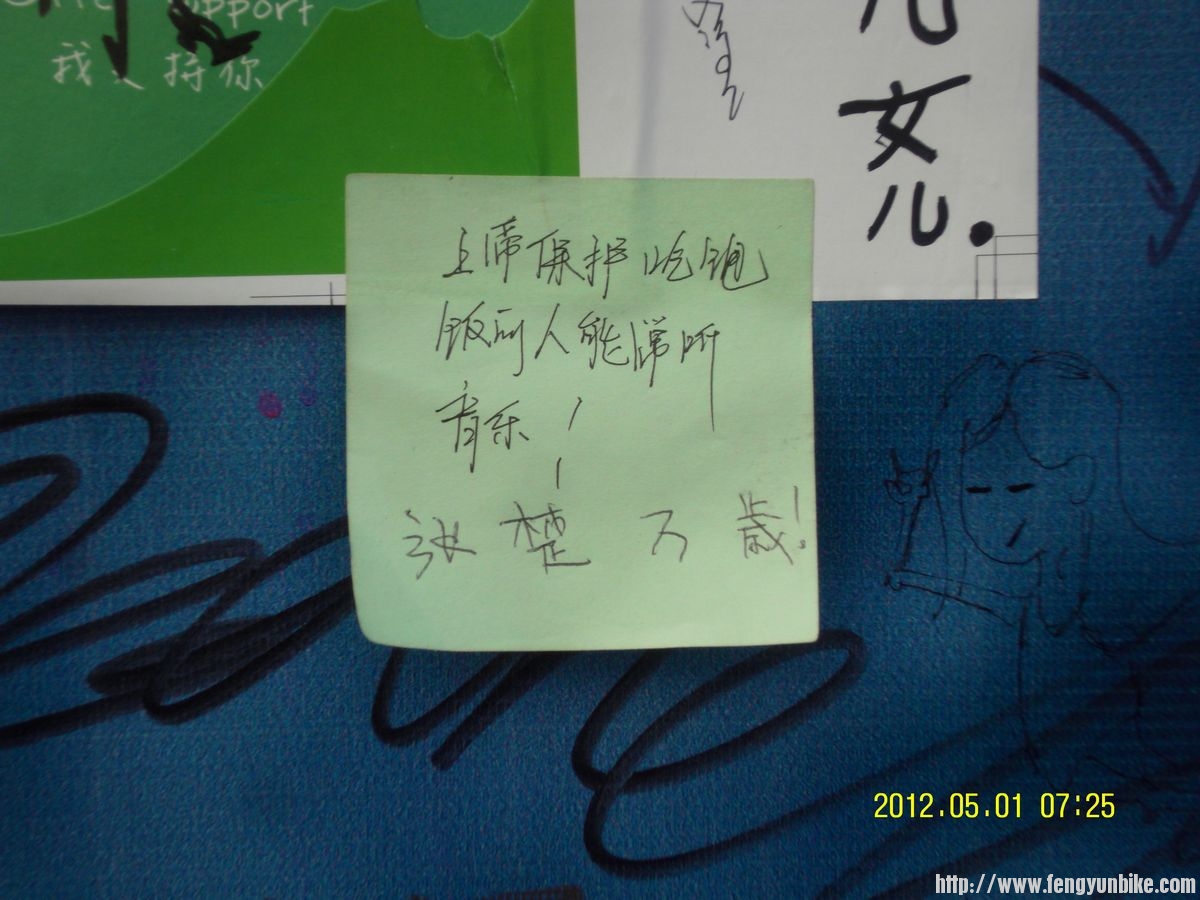 support
我支持你
儿
女
儿.
上帝保护吃饱
饭的人能常听
音乐!
张楚万岁!
2012.05.01 07:25
http://www.fengyunbike.com